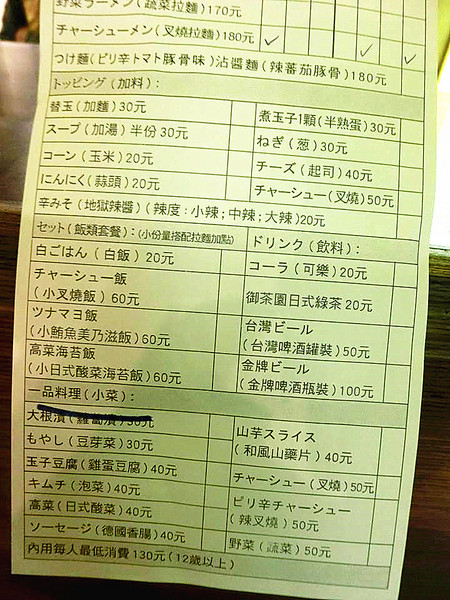 野菜ラーメン(蔬菜拉麵)170元
チャーシューメン(叉燒拉麵)180元
つけ麵(ピリ辛トマト豚骨味)沾醬麵(辣蕃茄豚骨)180元
トッピング(加料):
替玉(加麵)30元
煮玉子1顆(半熟蛋)30元
スープ(加湯)半份30元
ねぎ(葱)30元
コーン(玉米)20元
チーズ(起司)40元
にんにく(蒜頭)20元
チャーシュー(叉燒)50元
辛みそ(地獄辣醬)(辣度:小辣;中辣;大辣)20元
セット(飯類套餐):(小份量搭配拉麵加點)
ドリンク(飲料):
白ごはん(白飯)20元
コーラ(可樂)20元
チャーシュー飯
(小叉燒飯)60元
御茶園日式綠茶20元
ツナマヨ飯
(小鮪魚美乃滋飯)60元
台灣ビール
(台灣啤酒罐裝)50元
高菜海苔飯
(小日式酸菜海苔飯)60元
金牌ビール
(金牌啤酒瓶裝)100元
一品料理(小菜):
大根漬(蘿蔔漬)30元
山芋スライス
(和風山藥片)40元
もやし(豆芽菜)30元
玉子豆腐(雞蛋豆腐)40元
チャーシュー(叉燒)50元
キムチ(泡菜)40元
ピリ辛チャーシュー
(辣叉燒)50元
高菜(日式酸菜)40元
ソーセージ(德國香腸)40元
野菜(蔬菜)50元
內用每人最低消費130元(12歲以上)